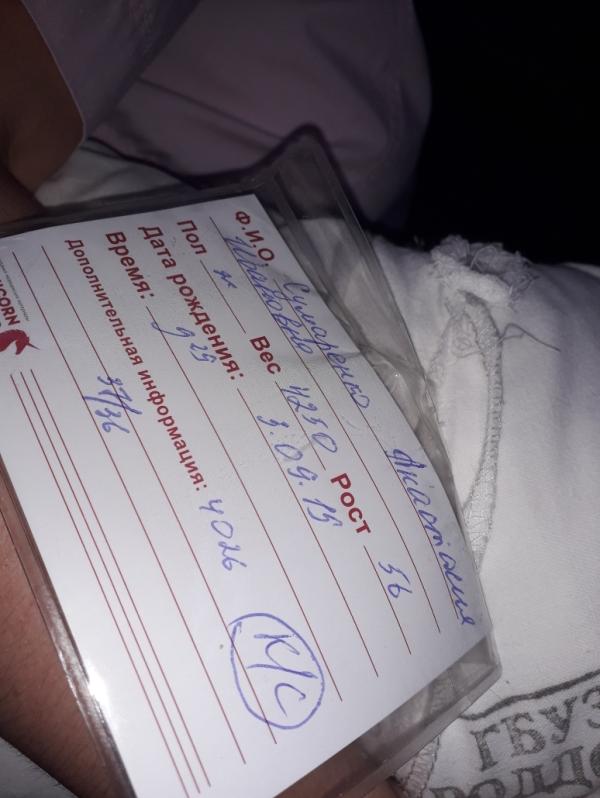 Ф.И.О. Сумаренко Анастасия
Пол ж Вес 4250 Рост 56
Дата рождения: 3.09.19
Время: 9 25
Дополнительная информация: 4026
37/36
К/С
ICORN
ГБУЗ
РОДДО